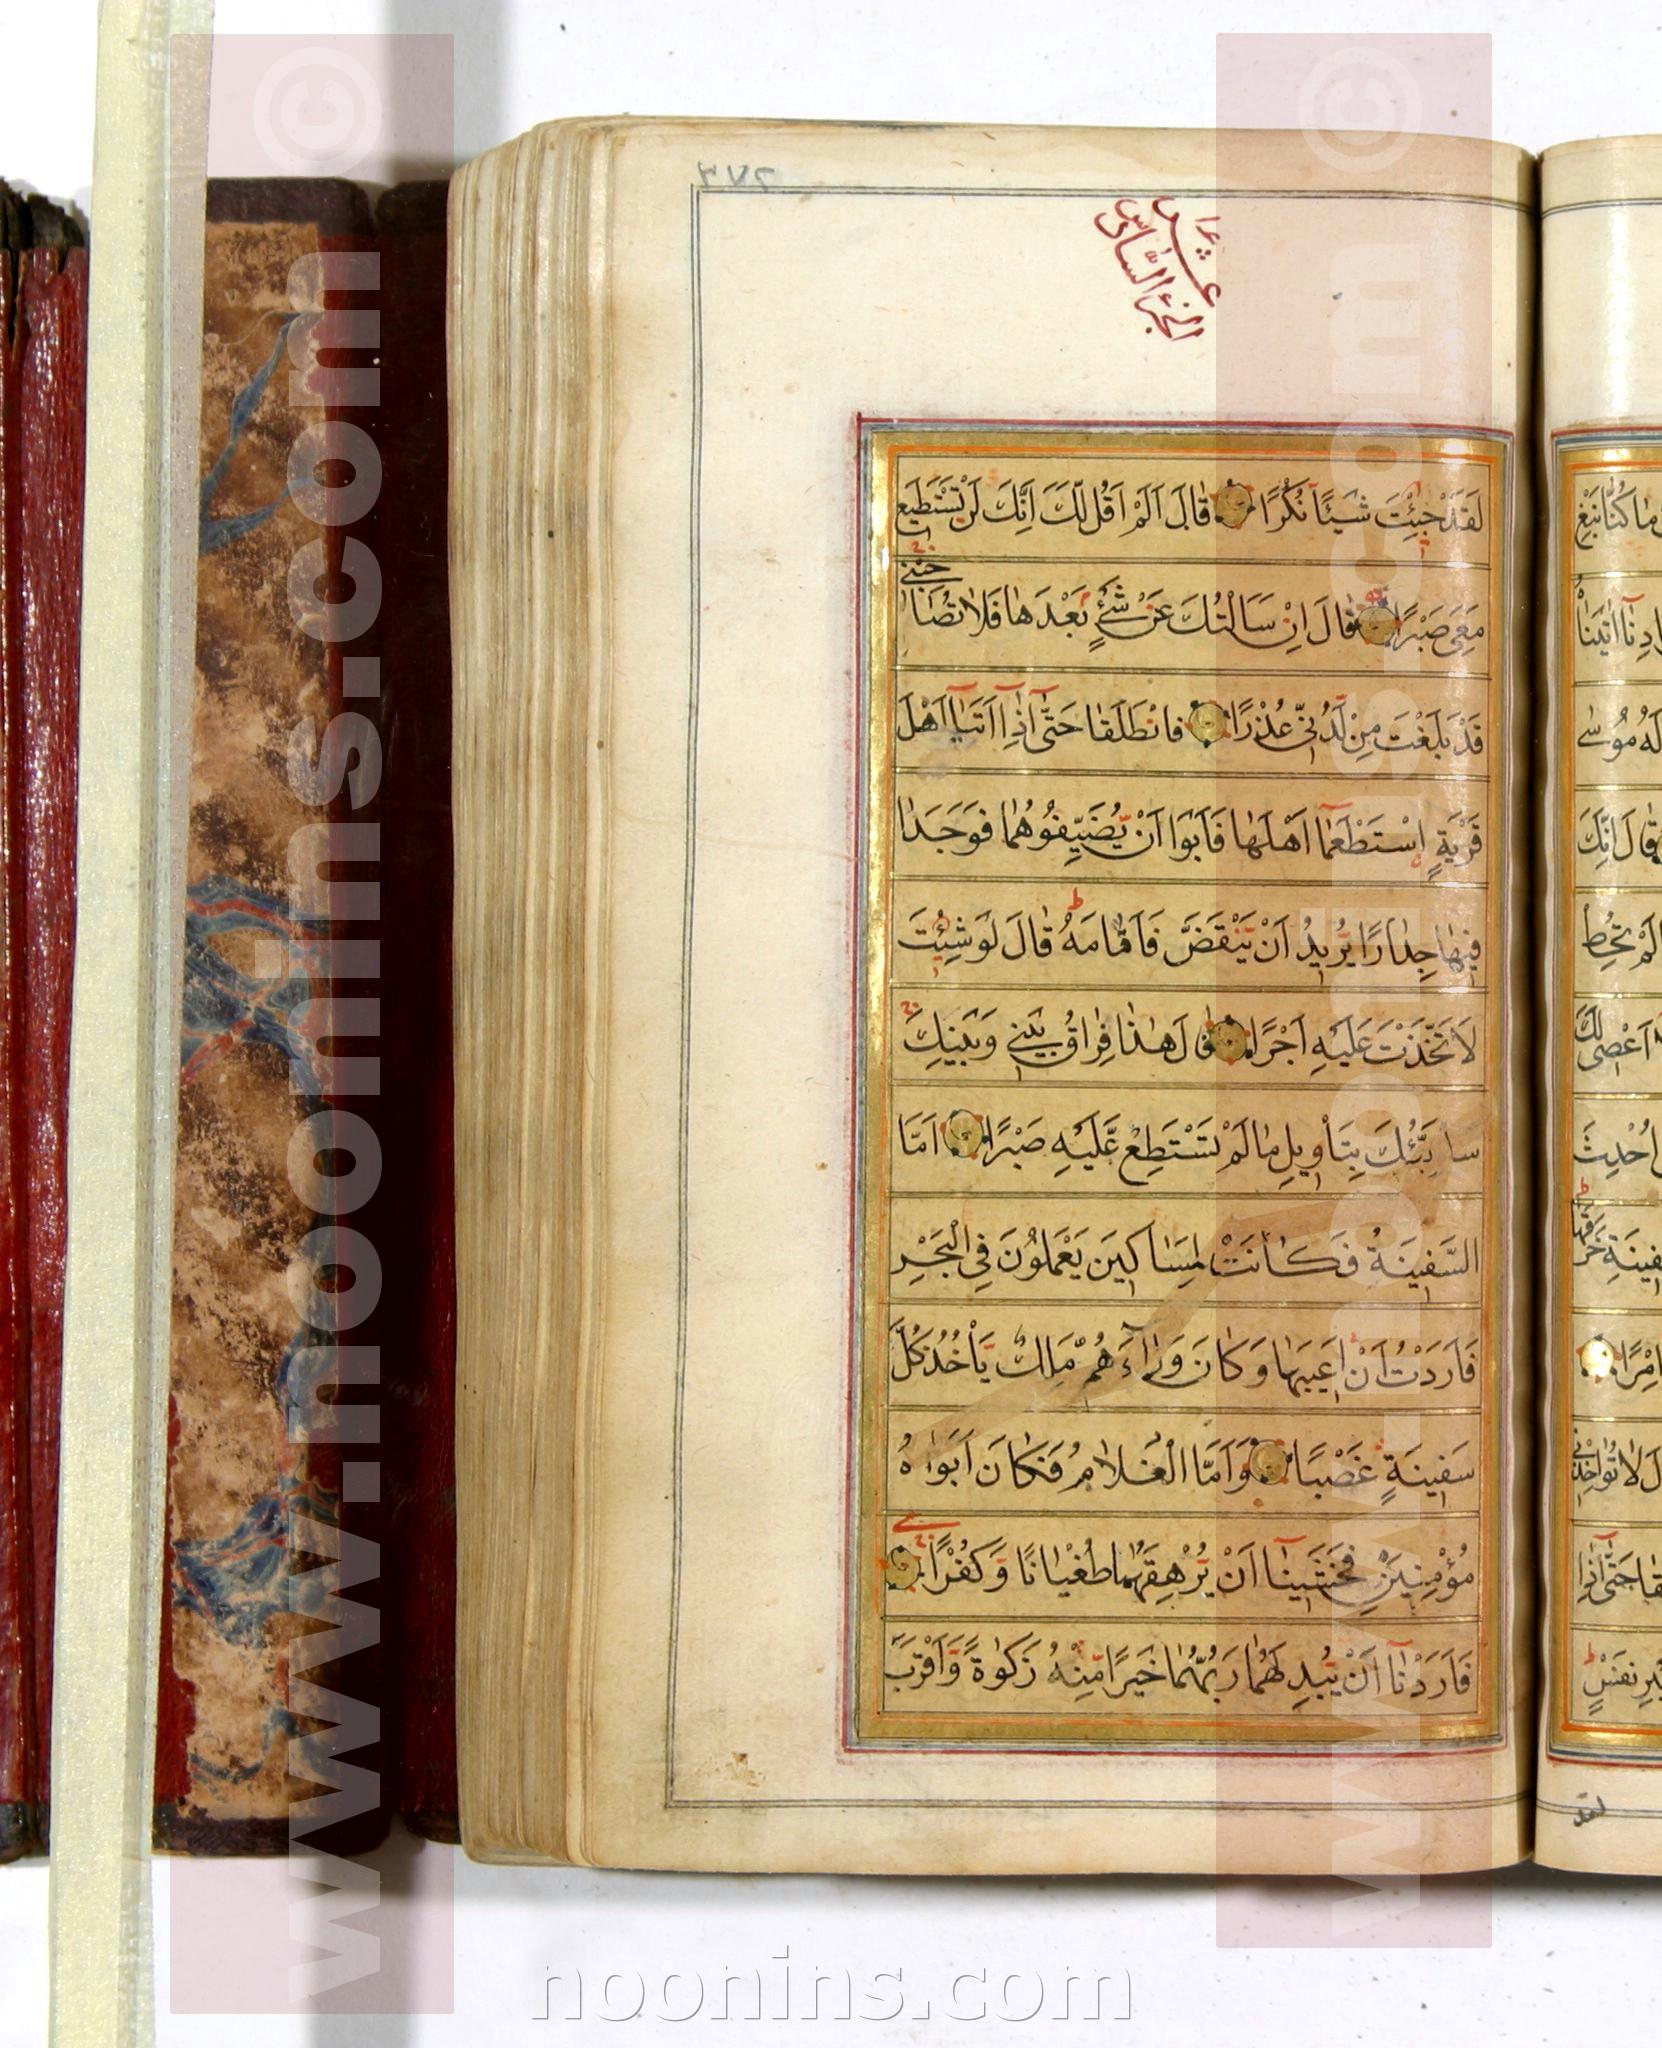 ٣٧٢
الجزء السادس
عشر ١٦
لَقَدْ جِئْتَ شَيْئًا نُكْرًا قٰالَ اَلَمْ اَقُلْ لَكَ اِنَّكَ لَنْ تَسْتَطِيعَ
مَعِىَ صَبْرًا قٰالَ اِنْ سَاَلْتُكَ عَنْ شَىْءٍ بَعْدَهٰا فَلاٰ تُصٰاحِبْنِى
قَدْ بَلَغْتَ مِنْ لَدُنِّى عُذْرًا فَانْطَلَقٰا حَتّٰى اِذٰا اَتَيٰا اَهْلَ
قَرْيَةٍ اِسْتَطْعَمٰا اَهْلَهٰا فَاَبَوْا اَنْ يُضَيِّفُوهُمٰا فَوَجَدٰا
فِيهٰا جِدٰارًا يُرِيدُ اَنْ يَنْقَضَّ فَاَقٰامَهُ قٰالَ لَوْ شِئْتَ
لَاتَّخَذْتَ عَلَيْهِ اَجْرًا قٰالَ هٰذٰا فِرٰاقُ بَيْنِى وَبَيْنِكَ
سَاُنَبِّئُكَ بِتَأْوِيلِ مٰا لَمْ تَسْتَطِعْ عَلَيْهِ صَبْرًا اَمَّا
السَّفِينَةُ فَكٰانَتْ لِمَسٰاكِينَ يَعْمَلُونَ فِى الْبَحْرِ
فَاَرَدْتُ اَنْ اَعِيبَهٰا وَكٰانَ وَرٰاءَهُمْ مَلِكٌ يَأْخُذُ كُلَّ
سَفِينَةٍ غَصْبًا وَاَمَّا الْغُلاٰمُ فَكٰانَ اَبَوٰاهُ
مُؤْمِنَيْنِ فَخَشِينٰا اَنْ يُرْهِقَهُمٰا طُغْيٰانًا وَكُفْرًا
فَاَرَدْنٰا اَنْ يُبْدِلَهُمٰا رَبُّهُمٰا خَيْرًا مِنْهُ زَكٰوةً وَاَقْرَبَ
لقد
www.noonins.com ©
www.noonins.com ©
noonins.com